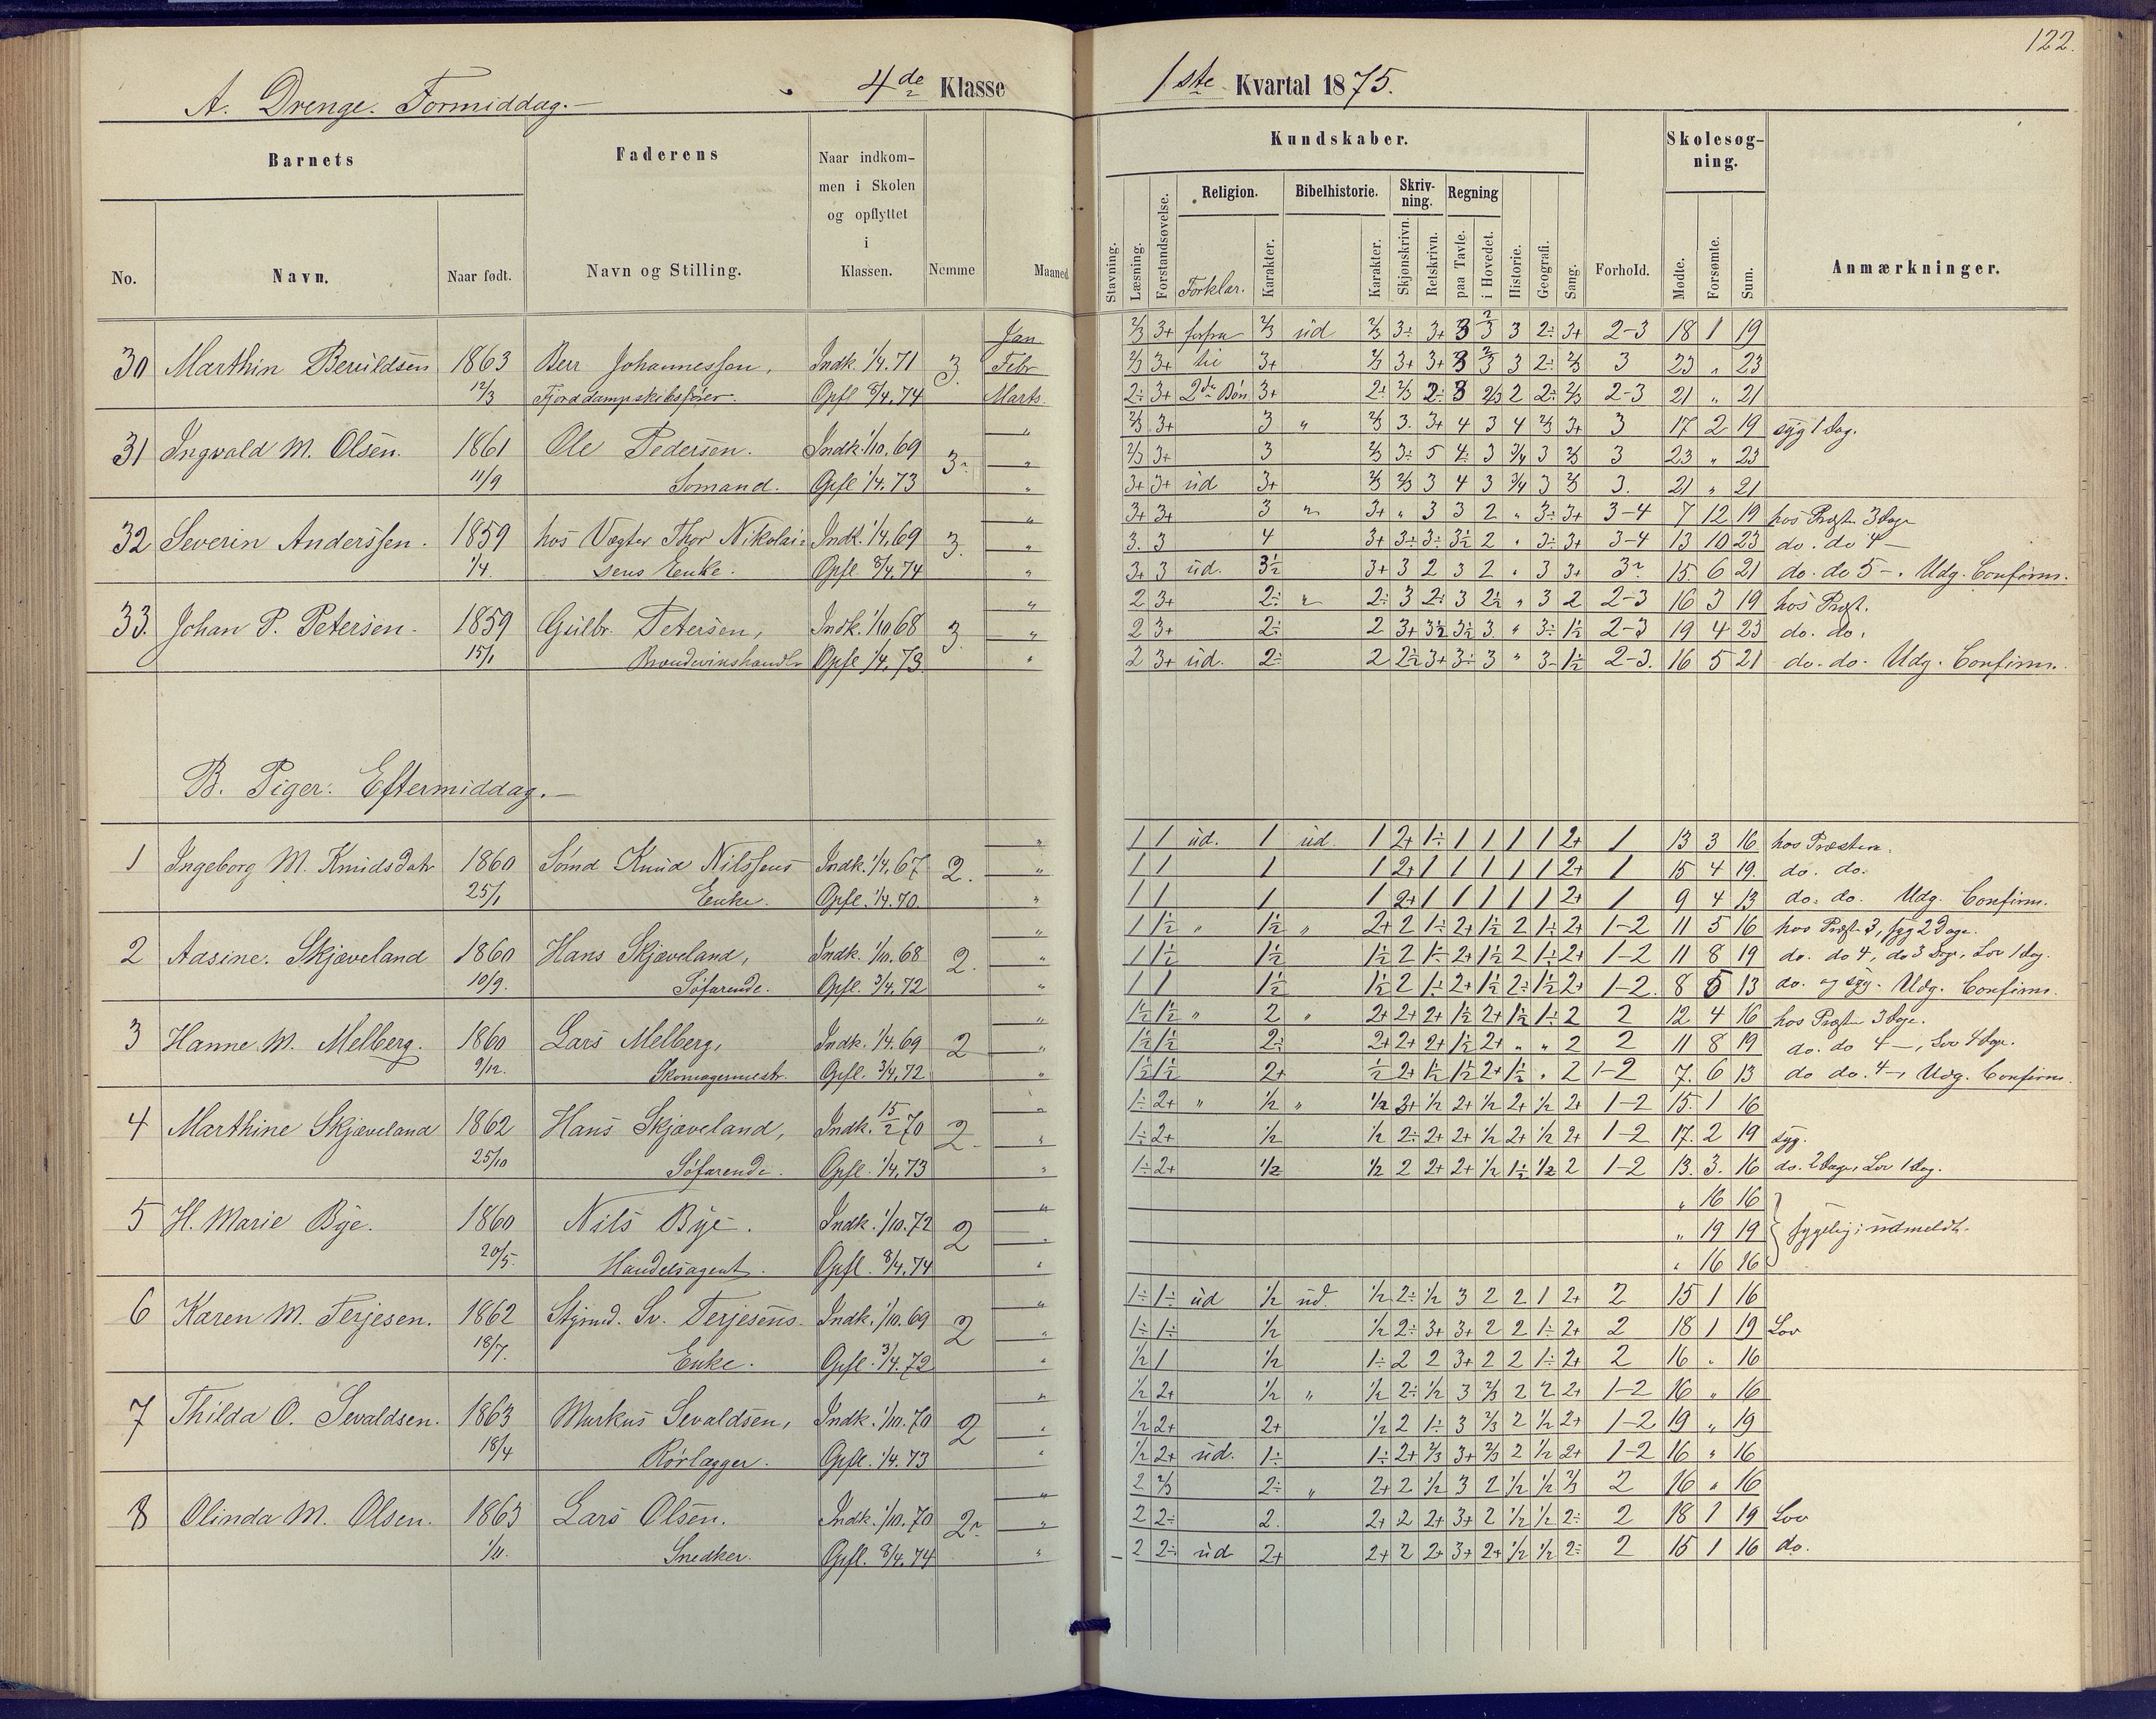 122.
A. Drenge. Formiddag. 4de Klasse 1ste Kvartal 1875.
Barnets Faderens Naar indkommen i Skolen og opflyttet i Klassen. Nemme Maaned Kundskaber. Forhold. Skolesøgning. Anmærkninger.
No. Navn. Naar født. Navn og Stilling.
Stavning. Læsning. Forstandsøvelse. Religion. Forklar. Karakter. Bibelhistorie. Karakter. Skrivning. Skjønskrivn. Retskrivn. Regning paa Tavle. i Hovedet. Historie. Geografi. Sang. Mødte. Forsømte. Sum.
Jan 2/3 3+ forfra 2/3 ud 2/3 3÷ 3+ 3 2/3 3 2÷ 3+ 2-3 18 1 19
30 Marthin Beruldsen 1863 Berr Johannessen, Indk. 1/4.71 3. Febr 2/3 3+ tic 3+ 2/3 3+ 3+ 3 2/3 3 2÷ 2/3 3 23 „ 23
12/3 Fjorddampskibsfører. Opfl 8/4.74 Marts. 2÷ 3+ 2den Bøn 3+ 2÷ 2/3 2÷ 3 2/3 2 2÷ 2/3 2-3 21 „ 21
„ 2/3 3+ 3 „ 2/3 3. 3+ 4 3 4 2/3 3+ 3 17 2 19 syg 1 Dag.
31 Ingvald M. Olsen. 1861 Ole Pedersen. Indk. 1/10.69 3÷ „ 2/3 3+ 3 2/3 3÷ 5 4÷ 3 3/4 3 2/3 3 23 „ 23
11/9 Sømand. Opfl 1/4.73 „ 3+ 3+ ud 3+ 2/3 2/3 3 4 3 3/4 3 2/3 3. 21 „ 21
„ 3+ 3+ 3 „ 3+ „ 3 3 2 „ 3÷ 3+ 3-4 7 12 19 hos Præsten 3 Dage
32 Severin Anderssen. 1859 hos Vægter Thor Nikolai- Indk. 1/4.69 3. „ 3. 3 4 3+ 3÷ 3÷ 3½ 2 „ 3÷ 3+ 3-4 13 10 23 do. do 4 —
1/4 sens Enke. Opfl. 8/4.74 „ 3+ 3 ud. 3½ 3+ 3 2 3 2 „ 3 3+ 3÷ 15. 6 21 do. do 5 -. Udg. Confirm.
„ 2 3+ 2÷ „ 2÷ 3 2÷ 3 2½ „ 3 2 2-3 16 3 19 hos Præst.
33. Johan P. Petersen. 1859 Gulbr. Petersen, Indk. 1/10.68 3. „ 2 3+ 2÷ 2 3+ 3½ 3½ 3. „ 3÷ 1½ 2-3 19 4 23 do. do.
15/1 Brændevinshandlr Opfl 1/4.73. „ 2 3+ ud. 2÷ 2 2½ 3+ 3÷ 3 „ 3- 1½ 2-3. 16 5 21 do. do. Udg. Confirm.
B. Piger. Eftermiddag. —
„ 1 1 ud. 1 ud. 1 2+ 1÷ 1 1 1 1 2+ 1 13 3 16 hos Præsten.
1 Ingeborg M. Knudsdatr 1860 Sømd Knud Nilssens Indk. 1/4.67 2. „ 1 1 1 1 2+ 1 1 1 1 1 2+ 1 15 4 19. do. do.
25/1 Enke. Opfl. 1/4.70. „ 1 1 1 1 2+ 1 1 1 1 1 2+ 1 9 4 13 do. do. Udg. Confirm.
„ 1 1½ „ 1½ „ 2+ 2 1÷ 2+ 1½ 2 1÷ 2+ 1-2 11 5 16 hos Præst 3, syg 2 Dage.
2 Aasine. Skjæveland 1860 Hans Skjæveland, Indk. 1/10.68 2. „ 1 1½ 1½ 1½ 2 1÷ 2+ 1½ 2 1÷ 2+ 1-2 11 8 19 do. do 4, do 3 Dage, Lov 1 Dag.
10/9. Søfarende. Opfl. 3/4.72 „ 1 1 1½ 1½ 2 1÷ 2+ 1½ 2÷ 1½ 2+ 1-2. 8 5 13 do. og syg. Udg. Confirm.
„ 1½ 1½ „ 2 „ 2+ 2+ 2+ 1½ 2+ 1½ 1÷ 2 2 12 4 16 hos Præsten 3 Dage.
3 Hanne M. Melberg. 1860 Lars Melberg, Indk. 1/4.69 2 „ 1½ 1½ 2÷ 2+ 2+ 2+ 1½ 2+ „ „ 2 2 11 8 19 do. do 4 —, Lov 4 Dage.
9/12. Skomagermestr. Opfl. 3/4.72 „ 1½ 1½ 2+ ½ 2+ 1½ 1½ 2+ 1½ „ 2 1-2 7. 6 13 do do. 4 —, Udg. Confirm.
„ 1÷ 2+ „ 1/2 „ 1/2 3+ 1/2 2+ 1/2 2+ 1/2 2+ 1-2 15. 1 16
4 Marthine Skjæveland 1862 Hans Skjæveland, Indk. 15/2 70 2. „ 1÷ 2+ 1/2 1/2 2÷ 2+ 2+ 1/2 2+ 1/2 2+ 1-2 17. 2 19 syg.
25/10 Søfarende. Opfl. 1/4.73 „ 1÷ 2+ 1/2 1/2 2 2+ 2+ 1/2 1÷ 1/2 2 1-2 13. 3. 16 do. 2 Dage, Lov 1 Dag.
„ „ 16 16
5 H. Marie Bye. 1860 Nils Bye. Indk. 1/10.72 2 „ „ 19 19 sygelig; udmeldt.
20/5. Handelsagent. Opfl. 8/4.74 „ „ 16 16
„ 1÷ 1÷ ud 1/2 ud. 1/2 2÷ 1/2 3 2 2 1 2+ 2 15 1 16
6 Karen M. Terjesen. 1862 Stymd. Sv. Terjesens Indk. 1/10.69 2 „ 1÷ 1÷ 1/2 1/2 2÷ 3+ 3+ 2 2 1÷ 2+ 2 18 1 19 Lov
18/7. Enke. Opfl. 3/4.72 „ 1/2 1 1/2 1÷ 2 2 3+ 2 2 1÷ 2+ 2 16 „ 16
„ 1/2 2+ 1/2 „ 1/2 2÷ 1/2 3 2/3 2 2 2+ 1-2 16 „ 16
7 Thilda O. Sevaldsen. 1863 Markus Sevaldsen, Indk. 1/10.70 2 „ 1/2 2+ 2+ 1/2 2 1÷ 3 2/3 2 1/2 2+ 1-2 19 „ 19
18/4 Rørlægger. Opfl. 1/4.73 „ 1/2 2+ ud. 1÷ 1÷ 2+ 2/3 3+ 2/3 2 1/2 2+ 1-2 16 „ 16
„ 2 2/3 2÷ „ 2+ 2 1/2 3 2 1/2 1/2 2/3 2 16 „ 16
8 Olinda M. Olsen. 1863 Lars Olsen. Indk. 1/10.70 2÷ „ 2 2÷ 2. 2+ 2 2+ 3+ 2 1/2 1/2 2÷ 2 18 1 19 Lov
1/11. Snedker. Opfl. 8/4.74 „ 2 2÷ ud 2+ 2+ 2 2+ 3+ 2+ 1/2 1/2 2÷ 2 15 1 16 do.